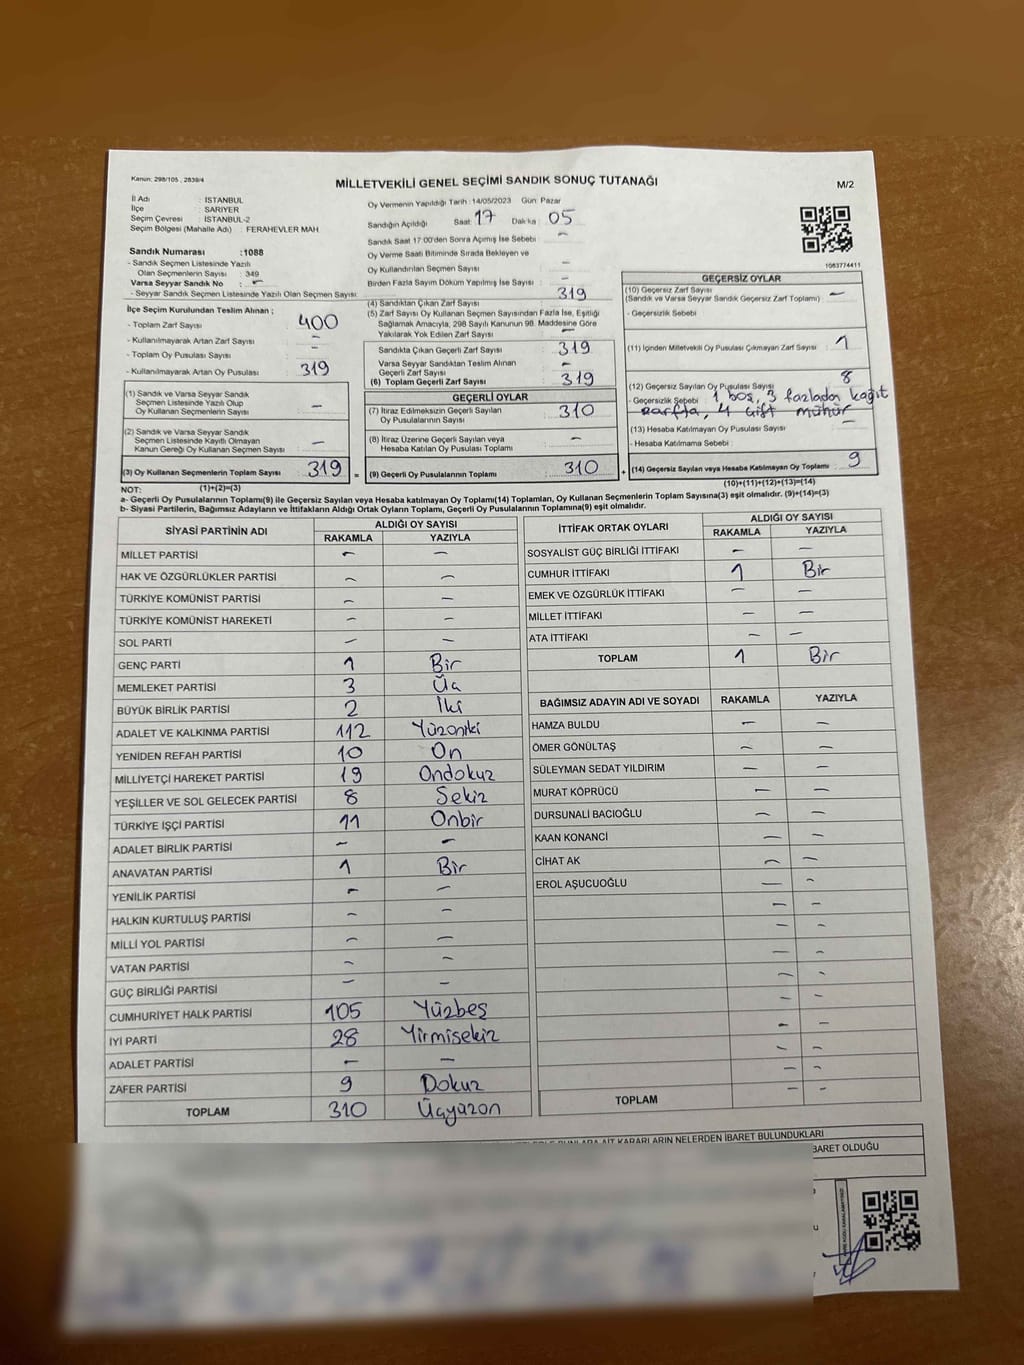 Kanun: 298/105 , 2839/4
MİLLETVEKİLİ GENEL SEÇİMİ SANDIK SONUÇ TUTANAĞI
M/2
İl Adı : İSTANBUL
İlçe : SARIYER
Seçim Çevresi : İSTANBUL-2
Seçim Bölgesi (Mahalle Adı) : FERAHEVLER MAH.
Sandık Numarası : 1088
- Sandık Seçmen Listesinde Yazılı
Olan Seçmenlerin Sayısı : 349
Varsa Seyyar Sandık No : -
- Seyyar Sandık Seçmen Listesinde Yazılı Olan Seçmen Sayısı:
Oy Vermenin Yapıldığı Tarih : 14/05/2023 Gün: Pazar
Sandığın Açıldığı Saat: 17 Dakika : 05
Sandık Saat 17:00'den Sonra Açılmış İse Sebebi : -
Oy Verme Saati Bitiminde Sırada Bekleyen ve
Oy Kullandırılan Seçmen Sayısı : -
Birden Fazla Sayım Döküm Yapılmış İse Sayısı : -
1083774411
İlçe Seçim Kurulundan Teslim Alınan ;
- Toplam Zarf Sayısı : 400
- Kullanılmayarak Artan Zarf Sayısı : -
- Toplam Oy Pusulası Sayısı : -
- Kullanılmayarak Artan Oy Pusulası : 319
(1) Sandık ve Varsa Seyyar Sandık
Seçmen Listesinde Yazılı Olup
Oy Kullanan Seçmenlerin Sayısı -
(2) Sandık ve Varsa Seyyar Sandık
Seçmen Listesinde Kayıtlı Olmayan
Kanun Gereği Oy Kullanan Seçmen Sayısı -
(3) Oy Kullanan Seçmenlerin Toplam Sayısı 319
(4) Sandıktan Çıkan Zarf Sayısı : 319
(5) Zarf Sayısı Oy Kullanan Seçmen Sayısından Fazla İse, Eşitliği
Sağlamak Amacıyla, 298 Sayılı Kanunun 98. Maddesine Göre
Yakılarak Yok Edilen Zarf Sayısı : -
Sandıkta Çıkan Geçerli Zarf Sayısı 319
Varsa Seyyar Sandıktan Teslim Alınan
Geçerli Zarf Sayısı -
(6) Toplam Geçerli Zarf Sayısı 319
GEÇERLİ OYLAR
(7) İtiraz Edilmeksizin Geçerli Sayılan
Oy Pusulalarının Sayısı 310
(8) İtiraz Üzerine Geçerli Sayılan veya
Hesaba Katılan Oy Pusulası Toplamı -
= (9) Geçerli Oy Pusulalarının Toplamı 310
GEÇERSİZ OYLAR
(10) Geçersiz Zarf Sayısı
(Sandık ve Varsa Seyyar Sandık Geçersiz Zarf Toplamı) -
- Geçersizlik Sebebi
(11) İçinden Milletvekili Oy Pusulası Çıkmayan Zarf Sayısı : 1
(12) Geçersiz Sayılan Oy Pusulası Sayısı 8
- Geçersizlik Sebebi : 1 boş, 3 fazladan kağıt
zarfta, 4 çift mühür
(13) Hesaba Katılmayan Oy Pusulası Sayısı : -
- Hesaba Katılmama Sebebi :
+ (14) Geçersiz Sayılan veya Hesaba Katılmayan Oy Toplamı 9
(1)+(2)=(3)
(10)+(11)+(12)+(13)=(14)
NOT:
a- Geçerli Oy Pusulalarının Toplamı(9) ile Geçersiz Sayılan veya Hesaba katılmayan Oy Toplamı(14) Toplamları, Oy Kullanan Seçmenlerin Toplam Sayısına(3) eşit olmalıdır. (9)+(14)=(3)
b- Siyasi Partilerin, Bağımsız Adayların ve İttifakların Aldığı Ortak Oyların Toplamı, Geçerli Oy Pusulalarının Toplamına(9) eşit olmalıdır.
SİYASİ PARTİNİN ADI ALDIĞI OY SAYISI
RAKAMLA YAZIYLA
MİLLET PARTİSİ - -
HAK VE ÖZGÜRLÜKLER PARTİSİ - -
TÜRKİYE KOMÜNİST PARTİSİ - -
TÜRKİYE KOMÜNİST HAREKETİ - -
SOL PARTİ - -
GENÇ PARTİ 1 Bir
MEMLEKET PARTİSİ 3 Üç
BÜYÜK BİRLİK PARTİSİ 2 İki
ADALET VE KALKINMA PARTİSİ 112 Yüzoniki
YENİDEN REFAH PARTİSİ 10 On
MİLLİYETÇİ HAREKET PARTİSİ 19 Ondokuz
YEŞİLLER VE SOL GELECEK PARTİSİ 8 Sekiz
TÜRKİYE İŞÇİ PARTİSİ 11 Onbir
ADALET BİRLİK PARTİSİ - -
ANAVATAN PARTİSİ 1 Bir
YENİLİK PARTİSİ - -
HALKIN KURTULUŞ PARTİSİ - -
MİLLİ YOL PARTİSİ - -
VATAN PARTİSİ - -
GÜÇ BİRLİĞİ PARTİSİ - -
CUMHURİYET HALK PARTİSİ 105 Yüzbeş
İYİ PARTİ 28 Yirmisekiz
ADALET PARTİSİ - -
ZAFER PARTİSİ 9 Dokuz
TOPLAM 310 Üçyüzon
İTTİFAK ORTAK OYLARI ALDIĞI OY SAYISI
RAKAMLA YAZIYLA
SOSYALİST GÜÇ BİRLİĞİ İTTİFAKI - -
CUMHUR İTTİFAKI 1 Bir
EMEK VE ÖZGÜRLÜK İTTİFAKI - -
MİLLET İTTİFAKI - -
ATA İTTİFAKI - -
TOPLAM 1 Bir
BAĞIMSIZ ADAYIN ADI VE SOYADI RAKAMLA YAZIYLA
HAMZA BULDU - -
ÖMER GÖNÜLTAŞ - -
SÜLEYMAN SEDAT YILDIRIM - -
MURAT KÖPRÜCÜ - -
DURSUNALİ BACIOĞLU - -
KAAN KONANCİ - -
CİHAT AK - -
EROL AŞUCUOĞLU - -
TOPLAM
AİT KARARLARIN NELERDEN İBARET BULUNDUKLARI
İBARET OLDUĞU